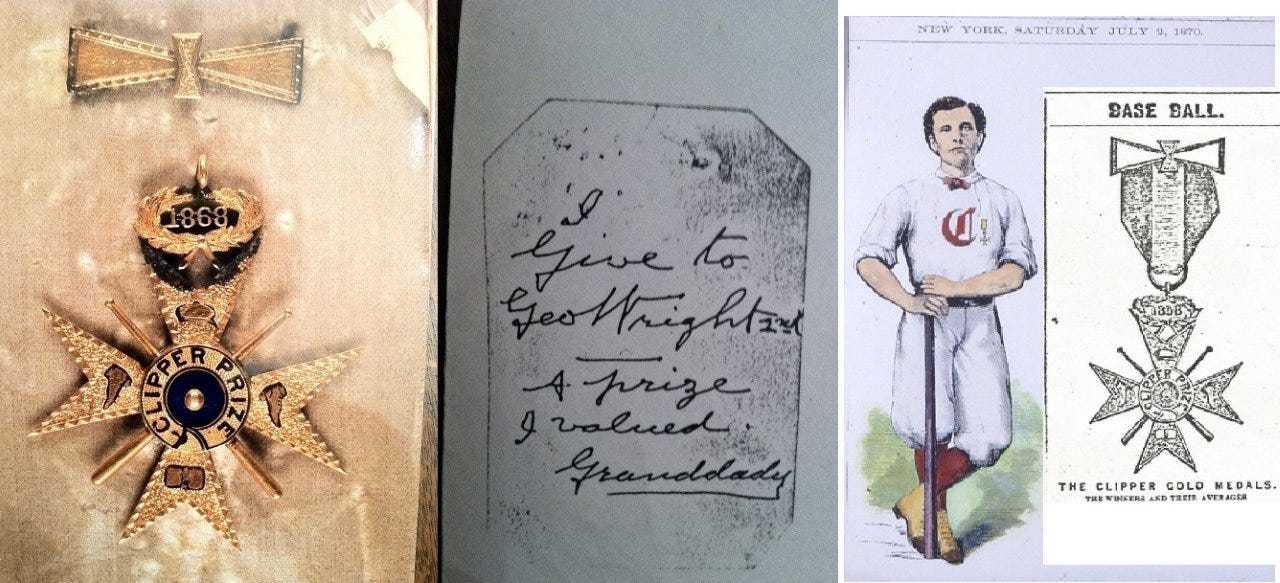 1868
CLIPPER PRIZE
I
Give to
Geo Wright 2nd
A prize
I valued.
Granddady
NEW YORK, SATURDAY JULY 2, 1870.
C
BASE BALL.
1868
CLIPPER PRIZE
THE CLIPPER GOLD MEDALS.
THE WINNERS AND THEIR AVERAGES